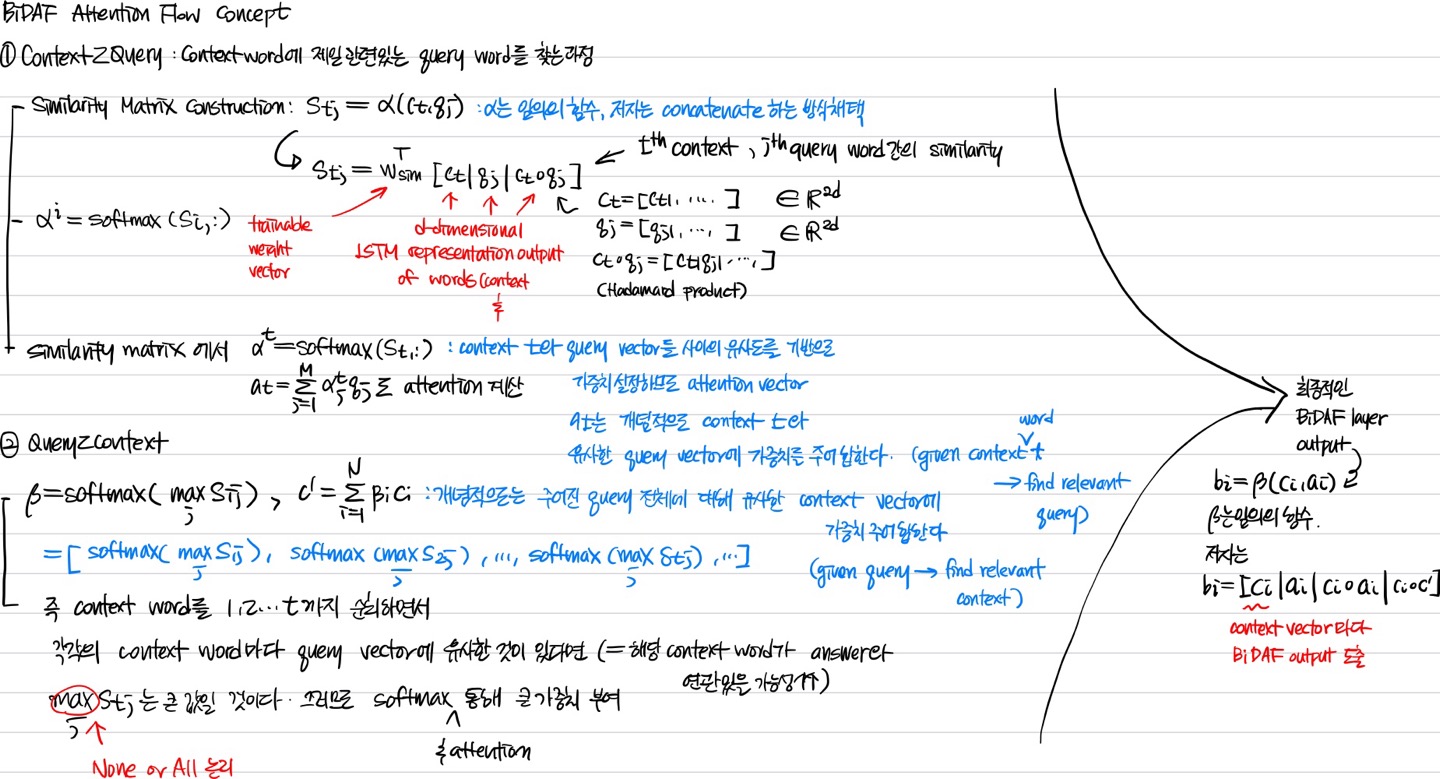 BiDAF Attention Flow Concept
① Context2Query : Context word에 제일 관련있는 query word를 찾는 과정
Similarity Matrix Construction: Stj = α(ct, qj) : α는 임의의 함수, 저자는 concatenate 하는 방식 채택
Stj = wsim^T [ct | qj | ct∘qj] ← t^th context, j^th query word간의 similarity
ct = [ct1, ....] ∈ ℝ^2d
qj = [qj1, ...., ] ∈ ℝ^2d
ct∘qj = [ct1qj1, ...,]
(Hadamard product)
α^i = softmax(Si,:)
trainable
weight
vector
d-dimensional
LSTM representation output
of words (context
&
similarity matrix 에서 α^t = softmax(St,:) : context t와 query vector들 사이의 유사도를 기반으로
at = Σ_{j=1}^{M} α_j^t qj로 attention 계산 가중치 설정하므로 attention vector
at는 개념적으로 context t와
유사한 query vector에 가중치를 주어 합한다. (given context word t
→ find relevant
query)
② Query2Context
β = softmax(max_j Sij), c' = Σ_{i=1}^{N} βi ci : 개념적으로는 주어진 query 전체에 대해 유사한 context vector에
가중치 주어 합한다
= [softmax(max_j S1j), softmax(max_j S2j), ..., softmax(max_j Stj), ...]
(given query → find relevant
context)
즉 context word를 1,2...t까지 순회하면서
각각의 context word마다 query vector에 유사한 것이 있다면 (= 해당 context word가 answer와
연관있을 가능성↑↑)
max_j Stj는 큰 값일 것이다. 그러므로 softmax 통해 큰 가중치 부여
& attention
None or All 논리
최종적인
BiDAF layer
output
bi = β(ci, ai)
β는 임의의 함수.
저자는
bi = [ci | ai | ci∘ai | ci∘c']
context vector마다
BiDAF output 도출